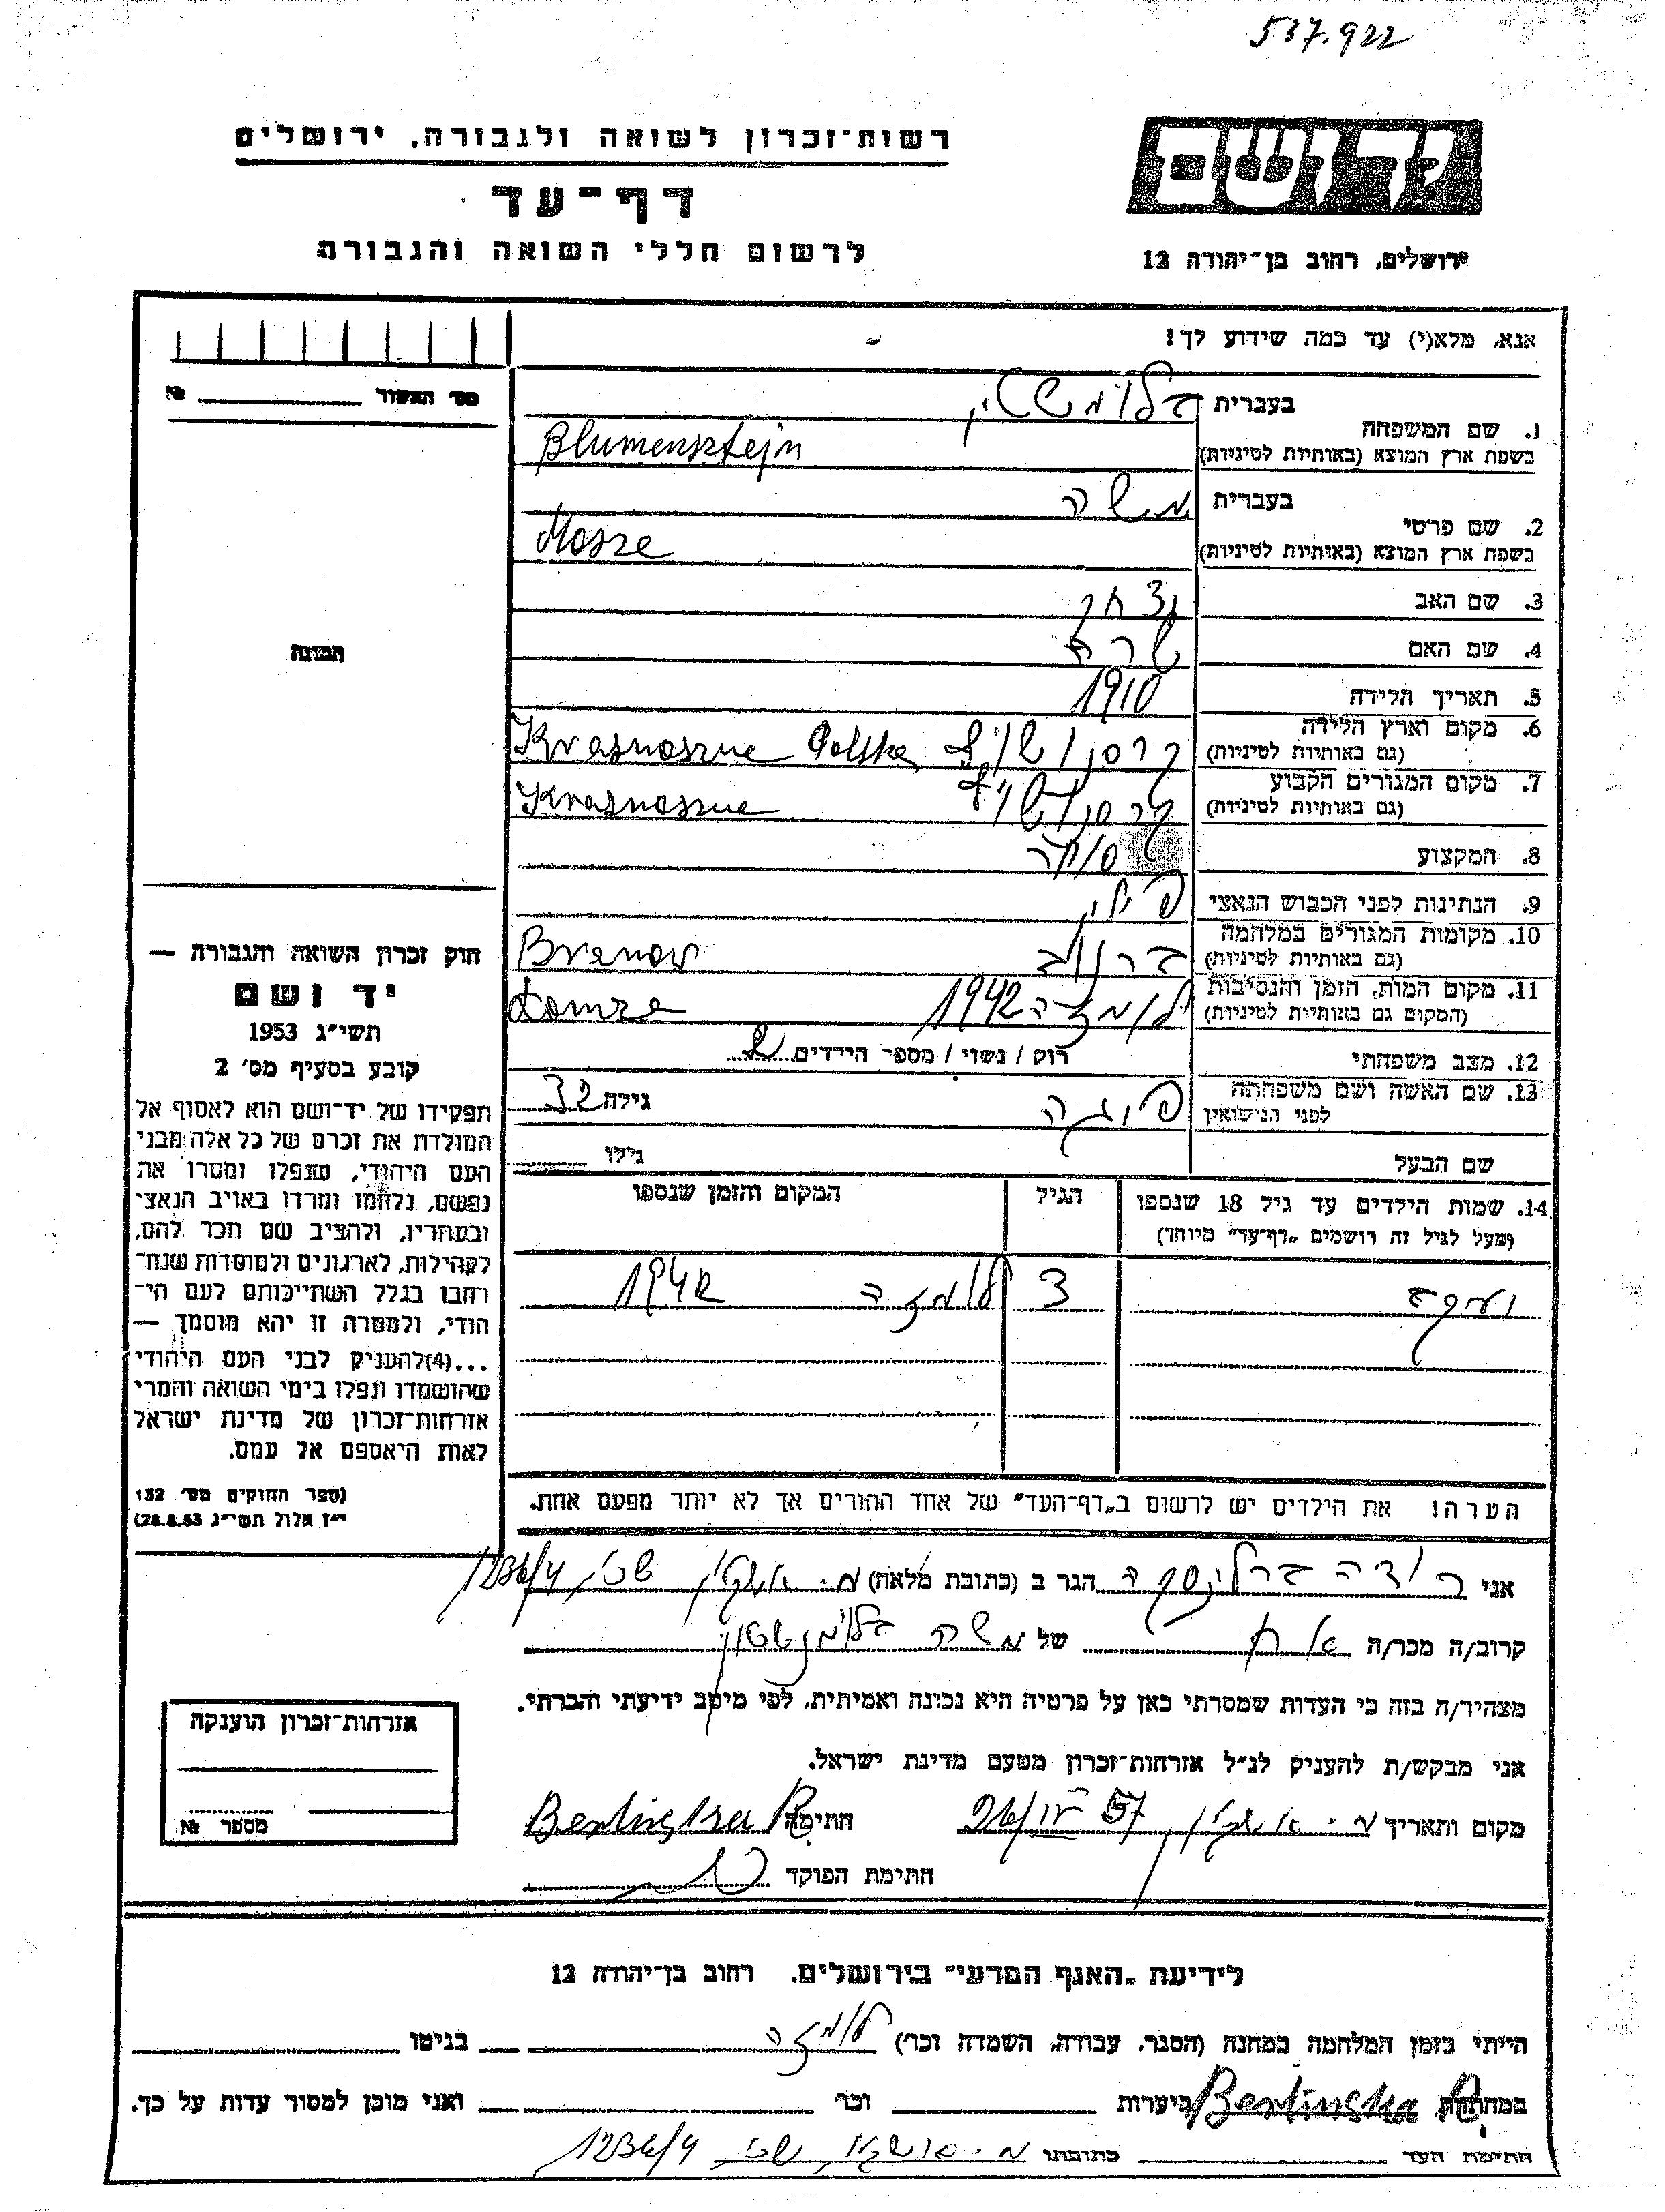 537.922
רשות־זכרון לשואה ולגבורה, ירושלים
יד ושם
דף־עד
לרשום חללי השואה והגבורה
ירושלים, רחוב בן־יהודה 12
אנא, מלא(י) עד כמה שידוע לך!
מס׳ האשור №
בעברית
1. שם המשפחה
בשפת ארץ המוצא (באותיות לטיניות) Blumensztejn
בעברית משה
2. שם פרטי
בשפת ארץ המוצא (באותיות לטיניות) Mosze
3. שם האב יצחק
4. שם האם שרה
5. תאריך הלידה 1910
6. מקום וארץ הלידה
(גם באותיות לטיניות) Krasnoszue Polska
7. מקום המגורים הקבוע
(גם באותיות לטיניות) Krasnoszue
8. המקצוע סוחר
9. הנתינות לפני הכבוש הנאצי
10. מקומות המגורים במלחמה
(גם באותיות לטיניות)
11. מקום המות, הזמן והנסיבות לומזה 1942
(המקום גם באותיות לטיניות) Łomza
12. מצב משפחתי רוק / נשוי / מספר הילדים
13. שם האשה ושם משפחתה גילה 32
לפני הנישואין
שם הבעל גילו
14. שמות הילדים עד גיל 18 שנספו הגיל המקום והזמן שנספו
(מעל לגיל זה רושמים „דף־עד״ מיוחד)
יעקב 3 לומזה 1942
הערה! את הילדים יש לרשום ב„דף־העד״ של אחד ההורים אך לא יותר מפעם אחת.
התמונה
חוק זכרון השואה והגבורה —
יד ושם
תשי״ג 1953
קובע בסעיף מס׳ 2
תפקידו של יד־ושם הוא לאסוף אל
המולדת את זכרם של כל אלה מבני
העם היהודי, שנפלו ומסרו את
נפשם, נלחמו ומרדו באויב הנאצי
ובעוזריו, ולהציב שם וזכר להם,
לקהילות, לארגונים ולמוסדות שנח־
רבו בגלל השתייכותם לעם הי־
הודי, ולמטרה זו יהא מוסמך —
...(4) להעניק לבני העם היהודי
שהושמדו ונפלו בימי השואה והמרי
אזרחות־זכרון של מדינת ישראל
לאות היאספם אל עמם.
(ספר החוקים מס׳ 132
י״ז אלול תשי״ג 28.8.53)
אני הגר ב (כתובת מלאה)
קרוב/ה מכר/ה אח של משה
מצהיר/ה בזה כי העדות שמסרתי כאן על פרטיה היא נכונה ואמיתית, לפי מיטב ידיעתי והכרתי.
אני מבקש/ת להעניק לנ״ל אזרחות־זכרון מטעם מדינת ישראל.
מקום ותאריך חתימה Berlinska R
חתימת הפוקד
אזרחות־זכרון הוענקה
מספר №
לידיעת „האגף המדעי״ בירושלים, רחוב בן־יהודה 12
הייתי בזמן המלחמה במחנה (הסגר, עבודה, השמדה וכו׳) לומזה בגיטו
במחתרת Berlinska R. ביערות וכו׳ ואני מוכן למסור עדות על כך.
חתימת העד כתובתו